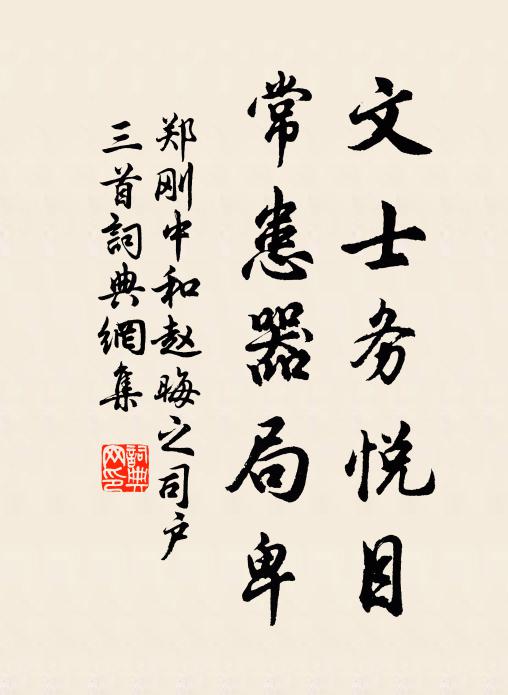 文士务悦目
常患器局卑
郑刚中和赵晦之司户
三首詞典網集
詞典网印